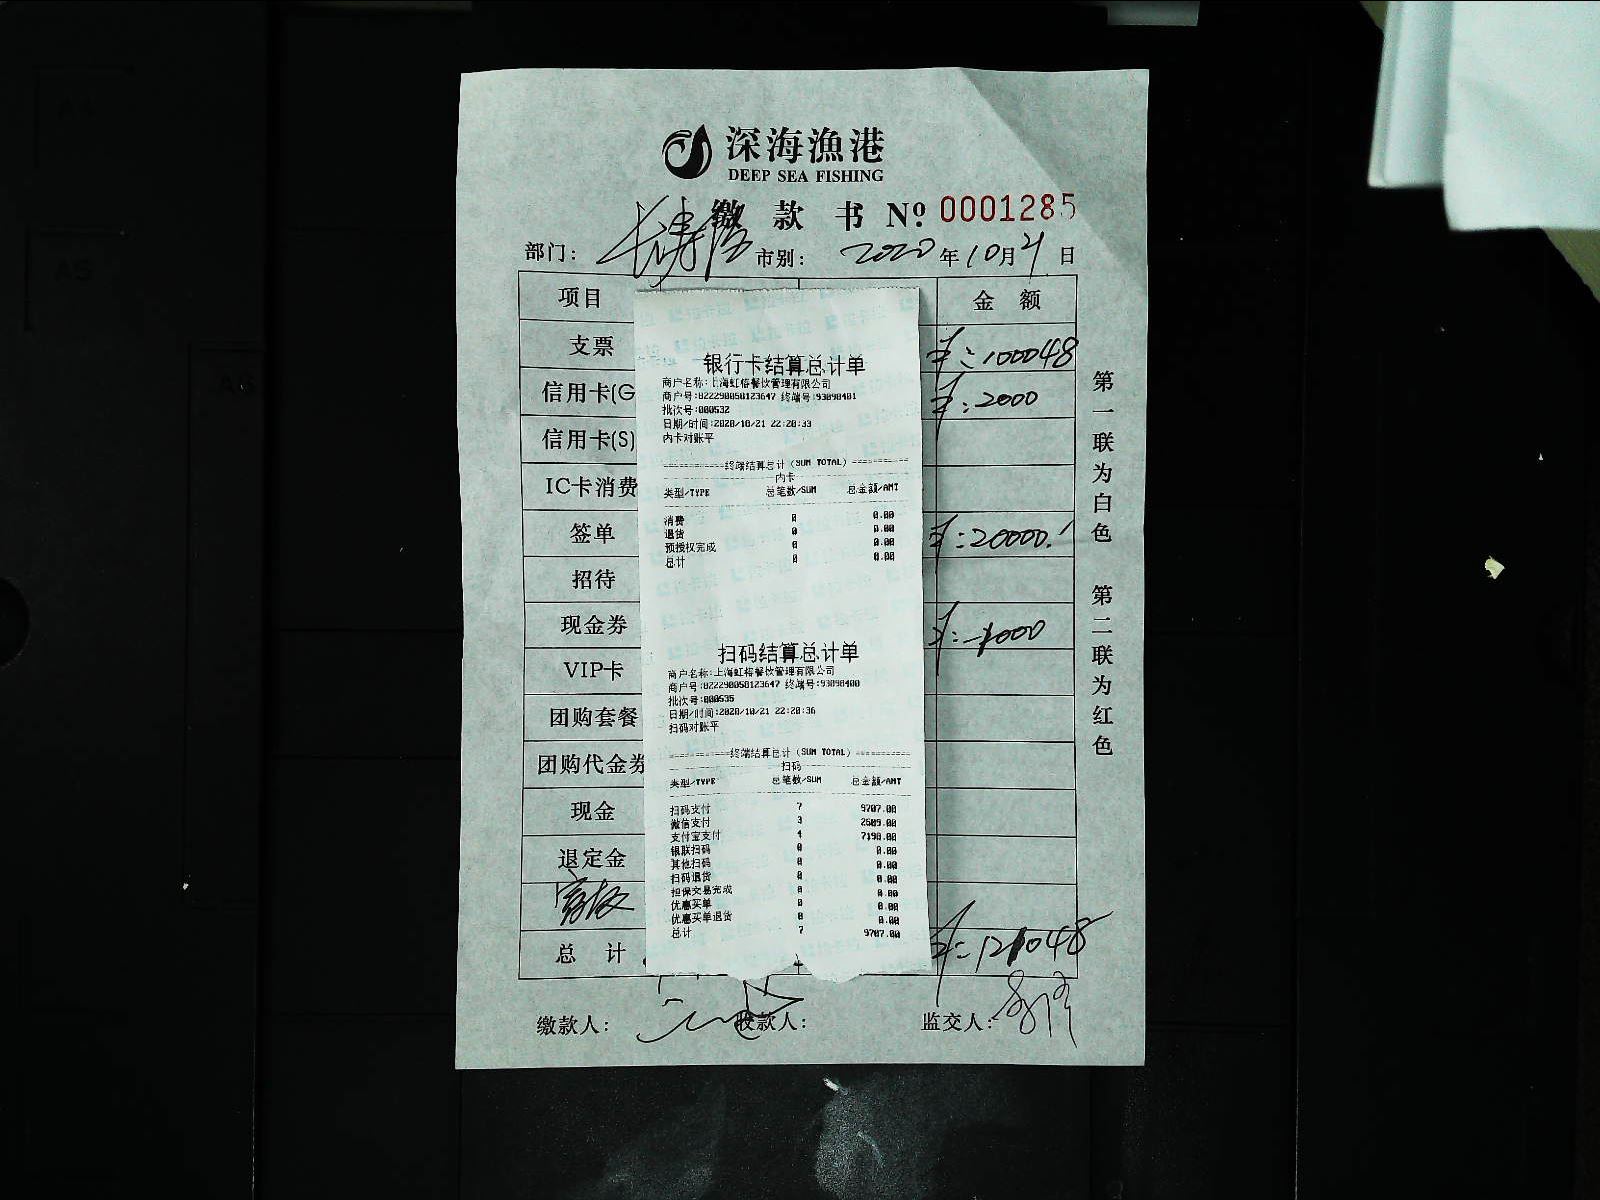 深海漁港
DEEP SEA FISHING
缴款书 Nº 0001285
部门： 市别： 2020年10月21日
项目 金额
支票 ¥：100048
信用卡(G ¥：2000
信用卡(S)
IC卡消费
签单 ¥：20000.
招待
现金券 ¥：-1000
VIP卡
团购套餐
团购代金券
现金
退定金
总计 ¥：121048
缴款人： 收款人： 监交人：
第一联为白色 第二联为红色
银行卡结算总计单
商户名称：上海虹榕餐饮管理有限公司
商户号：822290058123647 终端号：93098401
批次号：000532
日期/时间：2020/10/21 22:20:33
内卡对账平
终端结算总计（SUM TOTAL）
内卡
类型/TYPE 总笔数/SUM 总金额/AMT
消费 0 0.00
退货 0 0.00
预授权完成 0 0.00
总计 0 0.00
扫码结算总计单
商户名称：上海虹榕餐饮管理有限公司
商户号：822290058123647 终端号：93098400
批次号：000535
日期/时间：2020/10/21 22:20:36
扫码对账平
终端结算总计（SUM TOTAL）
扫码
类型/TYPE 总笔数/SUM 总金额/AMT
扫码支付 7 9707.00
微信支付 3 2509.00
支付宝支付 4 7198.00
银联扫码 0 0.00
其他扫码 0 0.00
扫码退货 0 0.00
担保交易完成 0 0.00
优惠买单 0 0.00
优惠买单退货 0 0.00
总计 7 9707.00